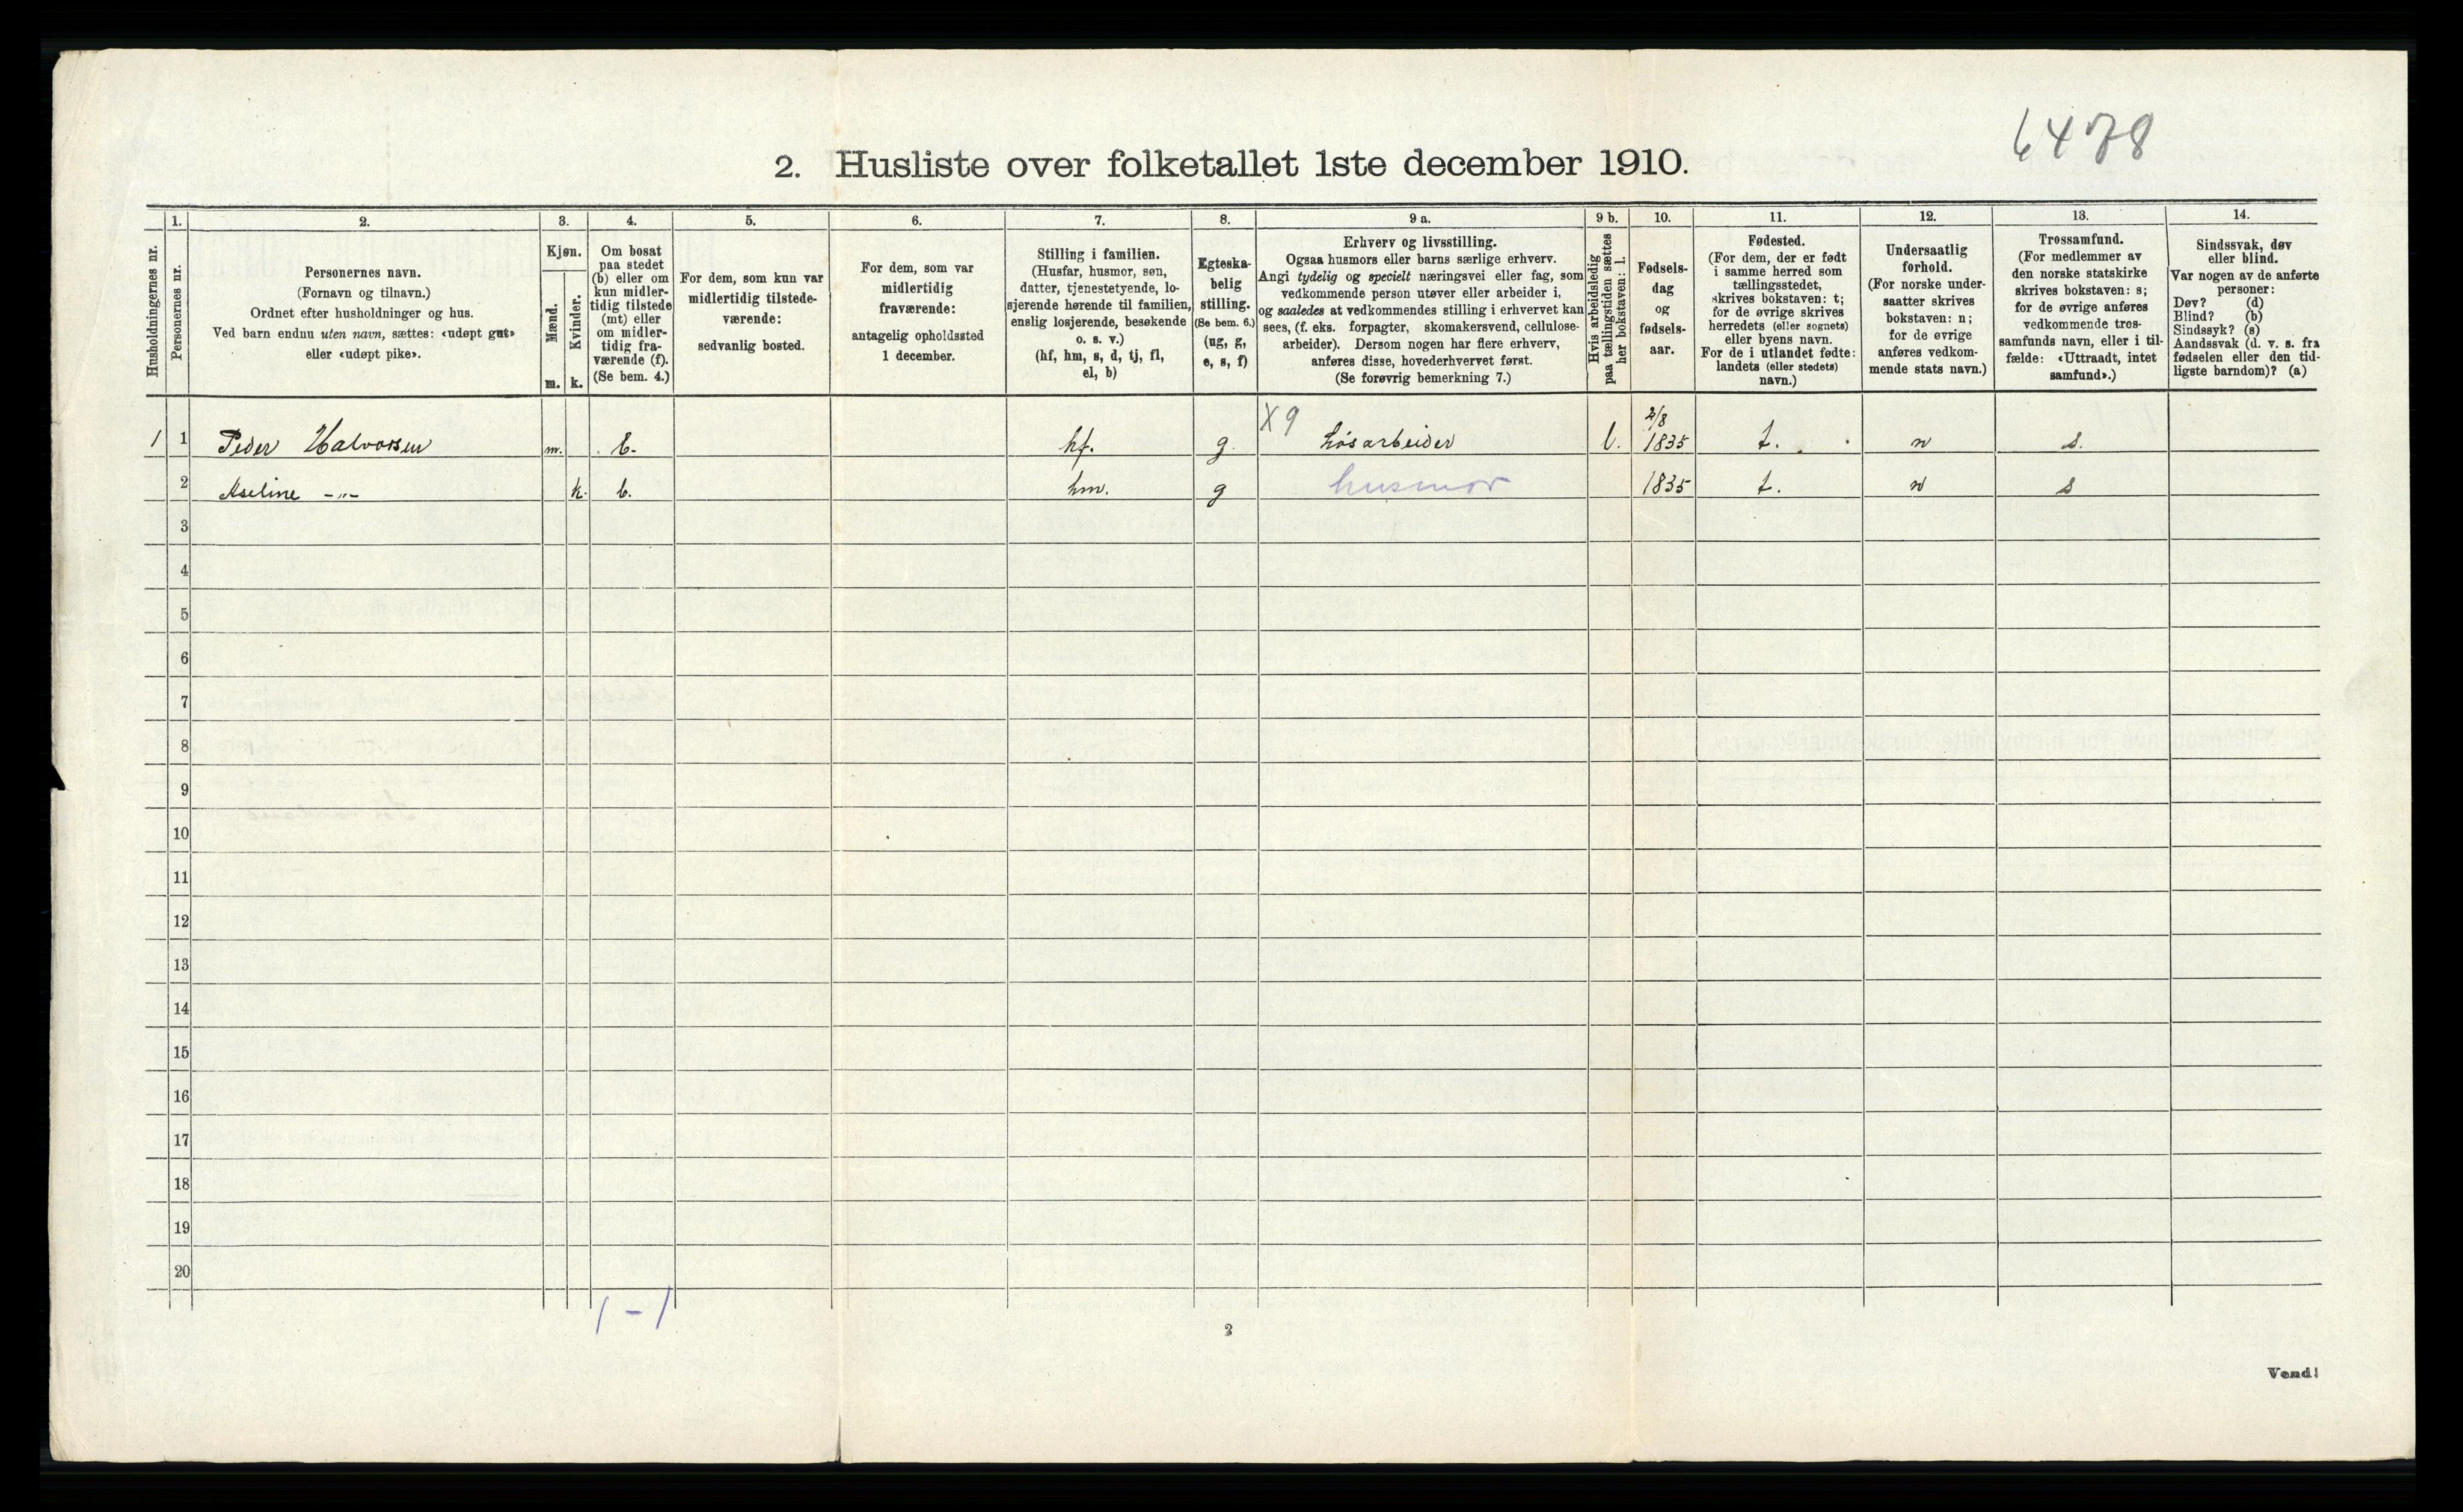 6478
2. Husliste over folketallet 1ste december 1910.
1. 2. 3. 4. 5. 6. 7. 8. 9 a. 9 b. 10. 11. 12. 13. 14.
Husholdningernes nr.
Personernes nr.
Personernes navn.
(Fornavn og tilnavn.)
Ordnet efter husholdninger og hus.
Ved barn endnu uten navn, sættes: «udøpt gut»
eller «udøpt pike».
Kjøn.
Mænd.
Kvinder.
m. k.
Om bosat
paa stedet
(b) eller om
kun midler-
tidig tilstede
(mt) eller
om midler-
tidig fra-
værende (f).
(Se bem. 4.)
For dem, som kun var
midlertidig tilstede-
værende:
sedvanlig bosted.
For dem, som var
midlertidig
fraværende:
antagelig opholdssted
1 december.
Stilling i familien.
(Husfar, husmor, søn,
datter, tjenestetyende, lo-
sjerende hørende til familien,
enslig losjerende, besøkende
o. s. v.)
(hf, hm, s, d, tj, fl,
el, b)
Egteska-
belig
stilling.
(Se bem. 6.)
(ug, g,
e, s, f)
Erhverv og livsstilling.
Ogsaa husmors eller barns særlige erhverv.
Angi tydelig og specielt næringsvei eller fag, som
vedkommende person utøver eller arbeider i,
og saaledes at vedkommendes stilling i erhvervet kan
sees, (f. eks. forpagter, skomakersvend, cellulose-
arbeider). Dersom nogen har flere erhverv,
anføres disse, hovederhvervet først.
(Se forøvrig bemerkning 7.)
Hvis arbeidsledig
paa tællingstiden sættes
her bokstaven: l.
Fødsels-
dag
og
fødsels-
aar.
Fødested.
(For dem, der er født
i samme herred som
tællingsstedet,
skrives bokstaven: t;
for de øvrige skrives
herredets (eller sognets)
eller byens navn.
For de i utlandet fødte:
landets (eller stedets)
navn.)
Undersaatlig
forhold.
(For norske under-
saatter skrives
bokstaven: n;
for de øvrige
anføres vedkom-
mende stats navn.)
Trossamfund.
(For medlemmer av
den norske statskirke
skrives bokstaven: s;
for de øvrige anføres
vedkommende tros-
samfunds navn, eller i til-
fælde: «Uttraadt, intet
samfund».)
Sindssvak, døv
eller blind.
Var nogen av de anførte
personer:
Døv? (d)
Blind? (b)
Sindssyk? (s)
Aandssvak (d. v. s. fra
fødselen eller den tid-
ligste barndom)? (a)
1 1 Peder Halvorsen m. b. hf. g. X9 Løsarbeider l. 1835 t. n s.
2 Aseline -"- k. b. hm. g husmor 1835 t. n s
3
4
5
6
7
8
9
10
11
12
13
14
15
16
17
18
19
20
1 - 1
2
Vend!